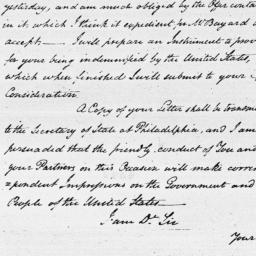 yesterday, and am much obliged by the Offer contai
in it, which I think it expedient for Mr Bayard
accept. — I will prepare an Instrument to prov
for your being indemnified by the United States,
which when finished I will submit to your
Consideration.
A Copy of your Letter shall be transm
to the Secretary of State at Philadelphia, and I am
persuaded that the friendly conduct of You and
your Partners on this Occasion will make corre
=pondent Impressions on the Government and
People of the United States —
I am Dr Sir
Your